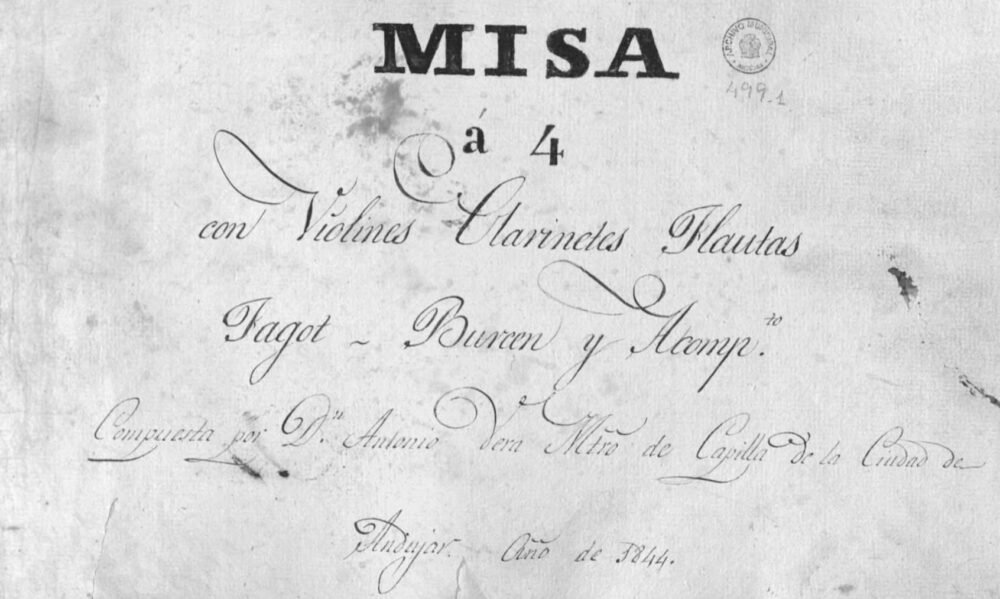 MISA
ARCHIVO MUNICIPAL
499-1
á 4
con Violines Clarinetes Flautas
Fagot - Burcen y Acomp.to
Compuesta por D.n Antonio Vera Mtro de Capilla de la Ciudad de
Andujar. Año de 1844.